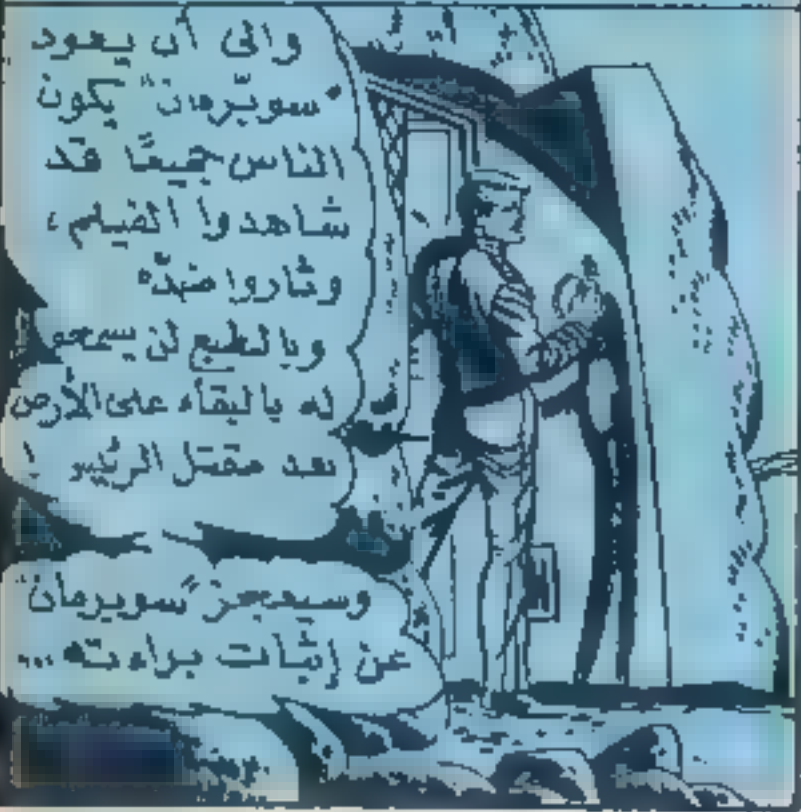 والى أن يعود
"سوبرمان" يكون
الناس جميعًا قد
شاهدوا الفيلم،
وثاروا ضدّه
وبالطبع لن يسمحو
له بالبقاء على الأرض
بعد مقتل الرئيس !
وسيعجز "سوبرمان"
عن إثبات براءته...